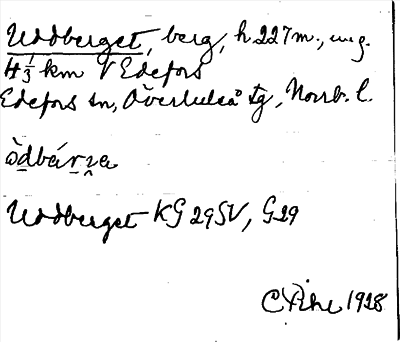 Uddberget, berg, h. 227 m., ung.
4 1/3 km V Edefors
Edefors sn, Överluleå tg, Norrb. l.
Uddberget KG 29 SV, G29
1928